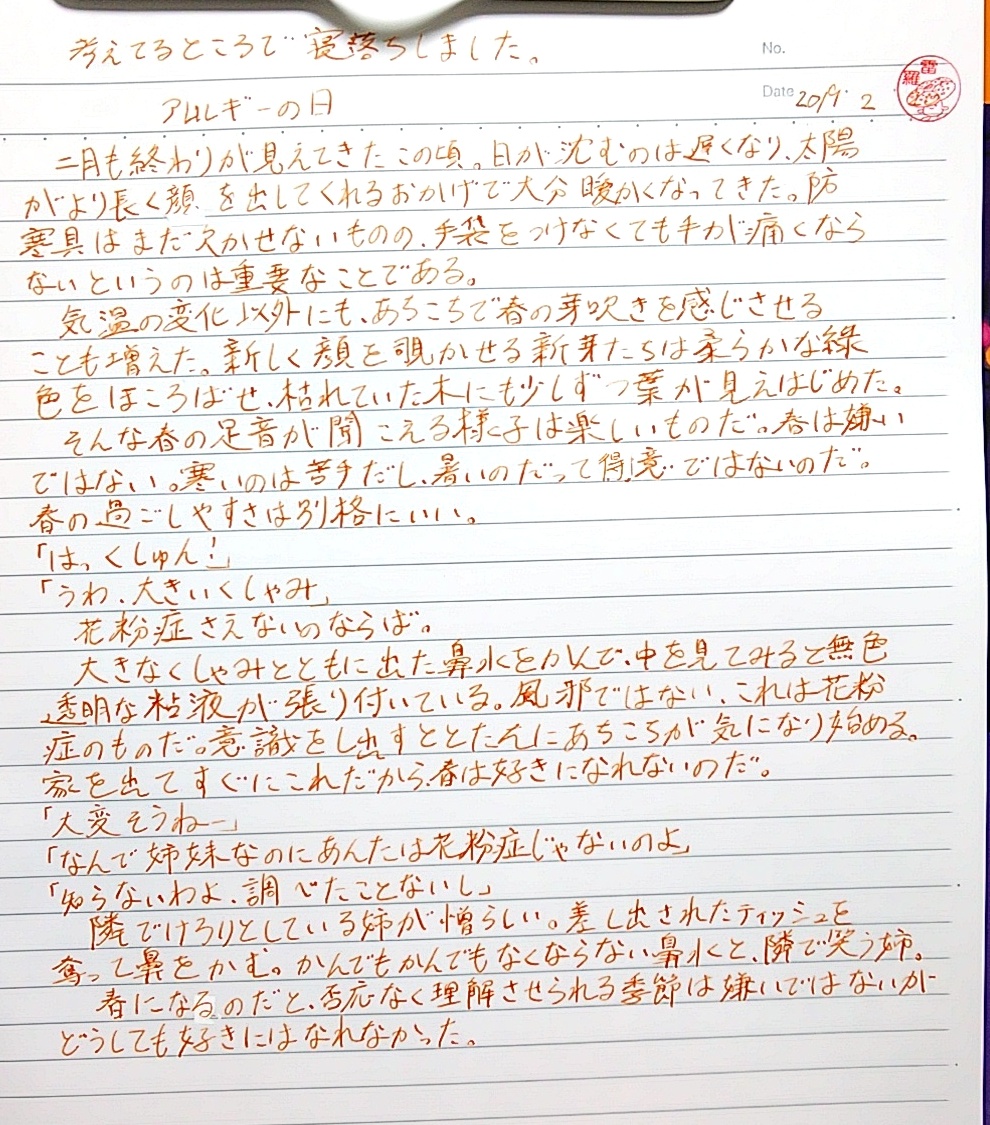 考えてるところで寝落ちしました。
No.
Date 2019. 2
雷
羅
アレルギーの日
二月も終わりが見えてきたこの頃。日が沈むのは遅くなり、太陽
がより長く顔を出してくれるおかげで大分暖かくなってきた。防
寒具はまだ欠かせないものの、手袋をつけなくても手が痛くなら
ないというのは重要なことである。
気温の変化以外にも、あちこちで春の芽吹きを感じさせる
ことも増えた。新しく顔を覗かせる新芽たちは柔らかな緑
色をほころばせ、枯れていた木にも少しずつ葉が見えはじめた。
そんな春の足音が聞こえる様子は楽しいものだ。春は嫌い
ではない。寒いのは苦手だし、暑いのだって得意ではないのだ。
春の過ごしやすさは別格にいい。
「はっくしゅん！」
「うわ、大きいくしゃみ」
花粉症さえないのならば。
大きなくしゃみとともに出た鼻水をかんで、中を見てみると無色
透明な粘液が張り付いている。風邪ではない、これは花粉
症のものだ。意識をし出すととたんにあちこちが気になり始める。
家を出てすぐにこれだから、春は好きになれないのだ。
「大変そうねー」
「なんで姉妹なのにあんたは花粉症じゃないのよ」
「知らないわよ、調べたことないし」
隣でけろりとしている姉が憎らしい。差し出されたティッシュを
奪って鼻をかむ。かんでもかんでもなくならない鼻水と、隣で笑う姉。
春になるのだと、否応なく理解させられる季節は嫌いではないが
どうしても好きにはなれなかった。